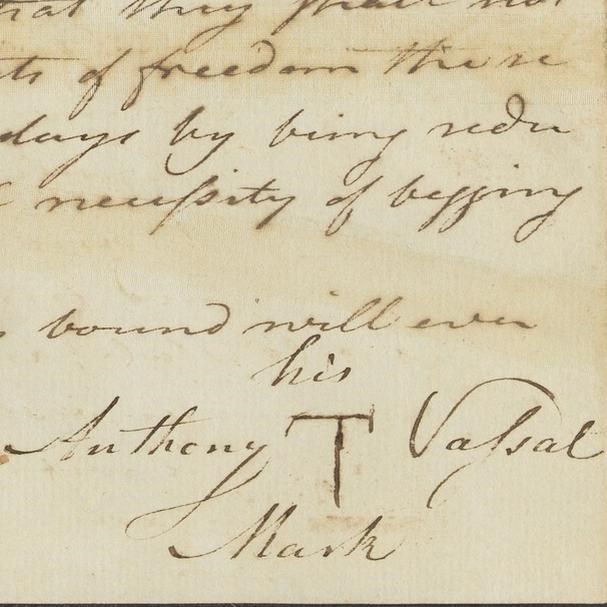 that they shall not
ts of freedom these
days by being redu
neceſsity of begging
bound will ever
his
Anthony T Vaſsal
Mark